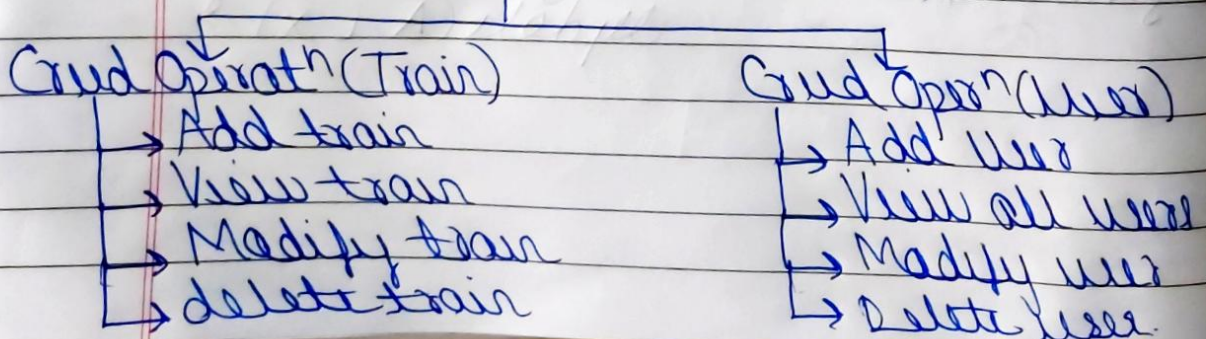 Crud Operatn (Train)
Add train
View train
Modify train
delete train
Crud Opern (User)
Add User
View all users
Modify user
Delete User.